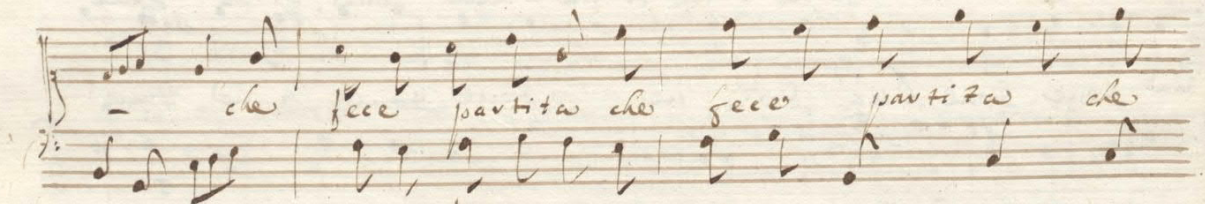 – che fece partita che fece partita che